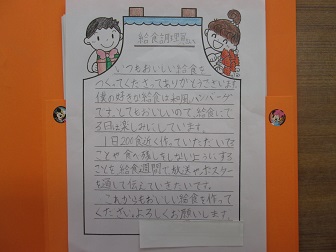 給食調理員
いつもおいしい給食を
つくってくださってありがとうございます。
僕の好きな給食は和風ハンバーグ
です。とてもおいしいので、給食にでる
日を楽しみにしています。
1日200食近く作っていただいている
ことや食べ残しをしないようにする
ことを給食週間で放送やポスター
を通して伝えていきたいです。
これからもおいしい給食を作って
ください。よろしくお願いします。